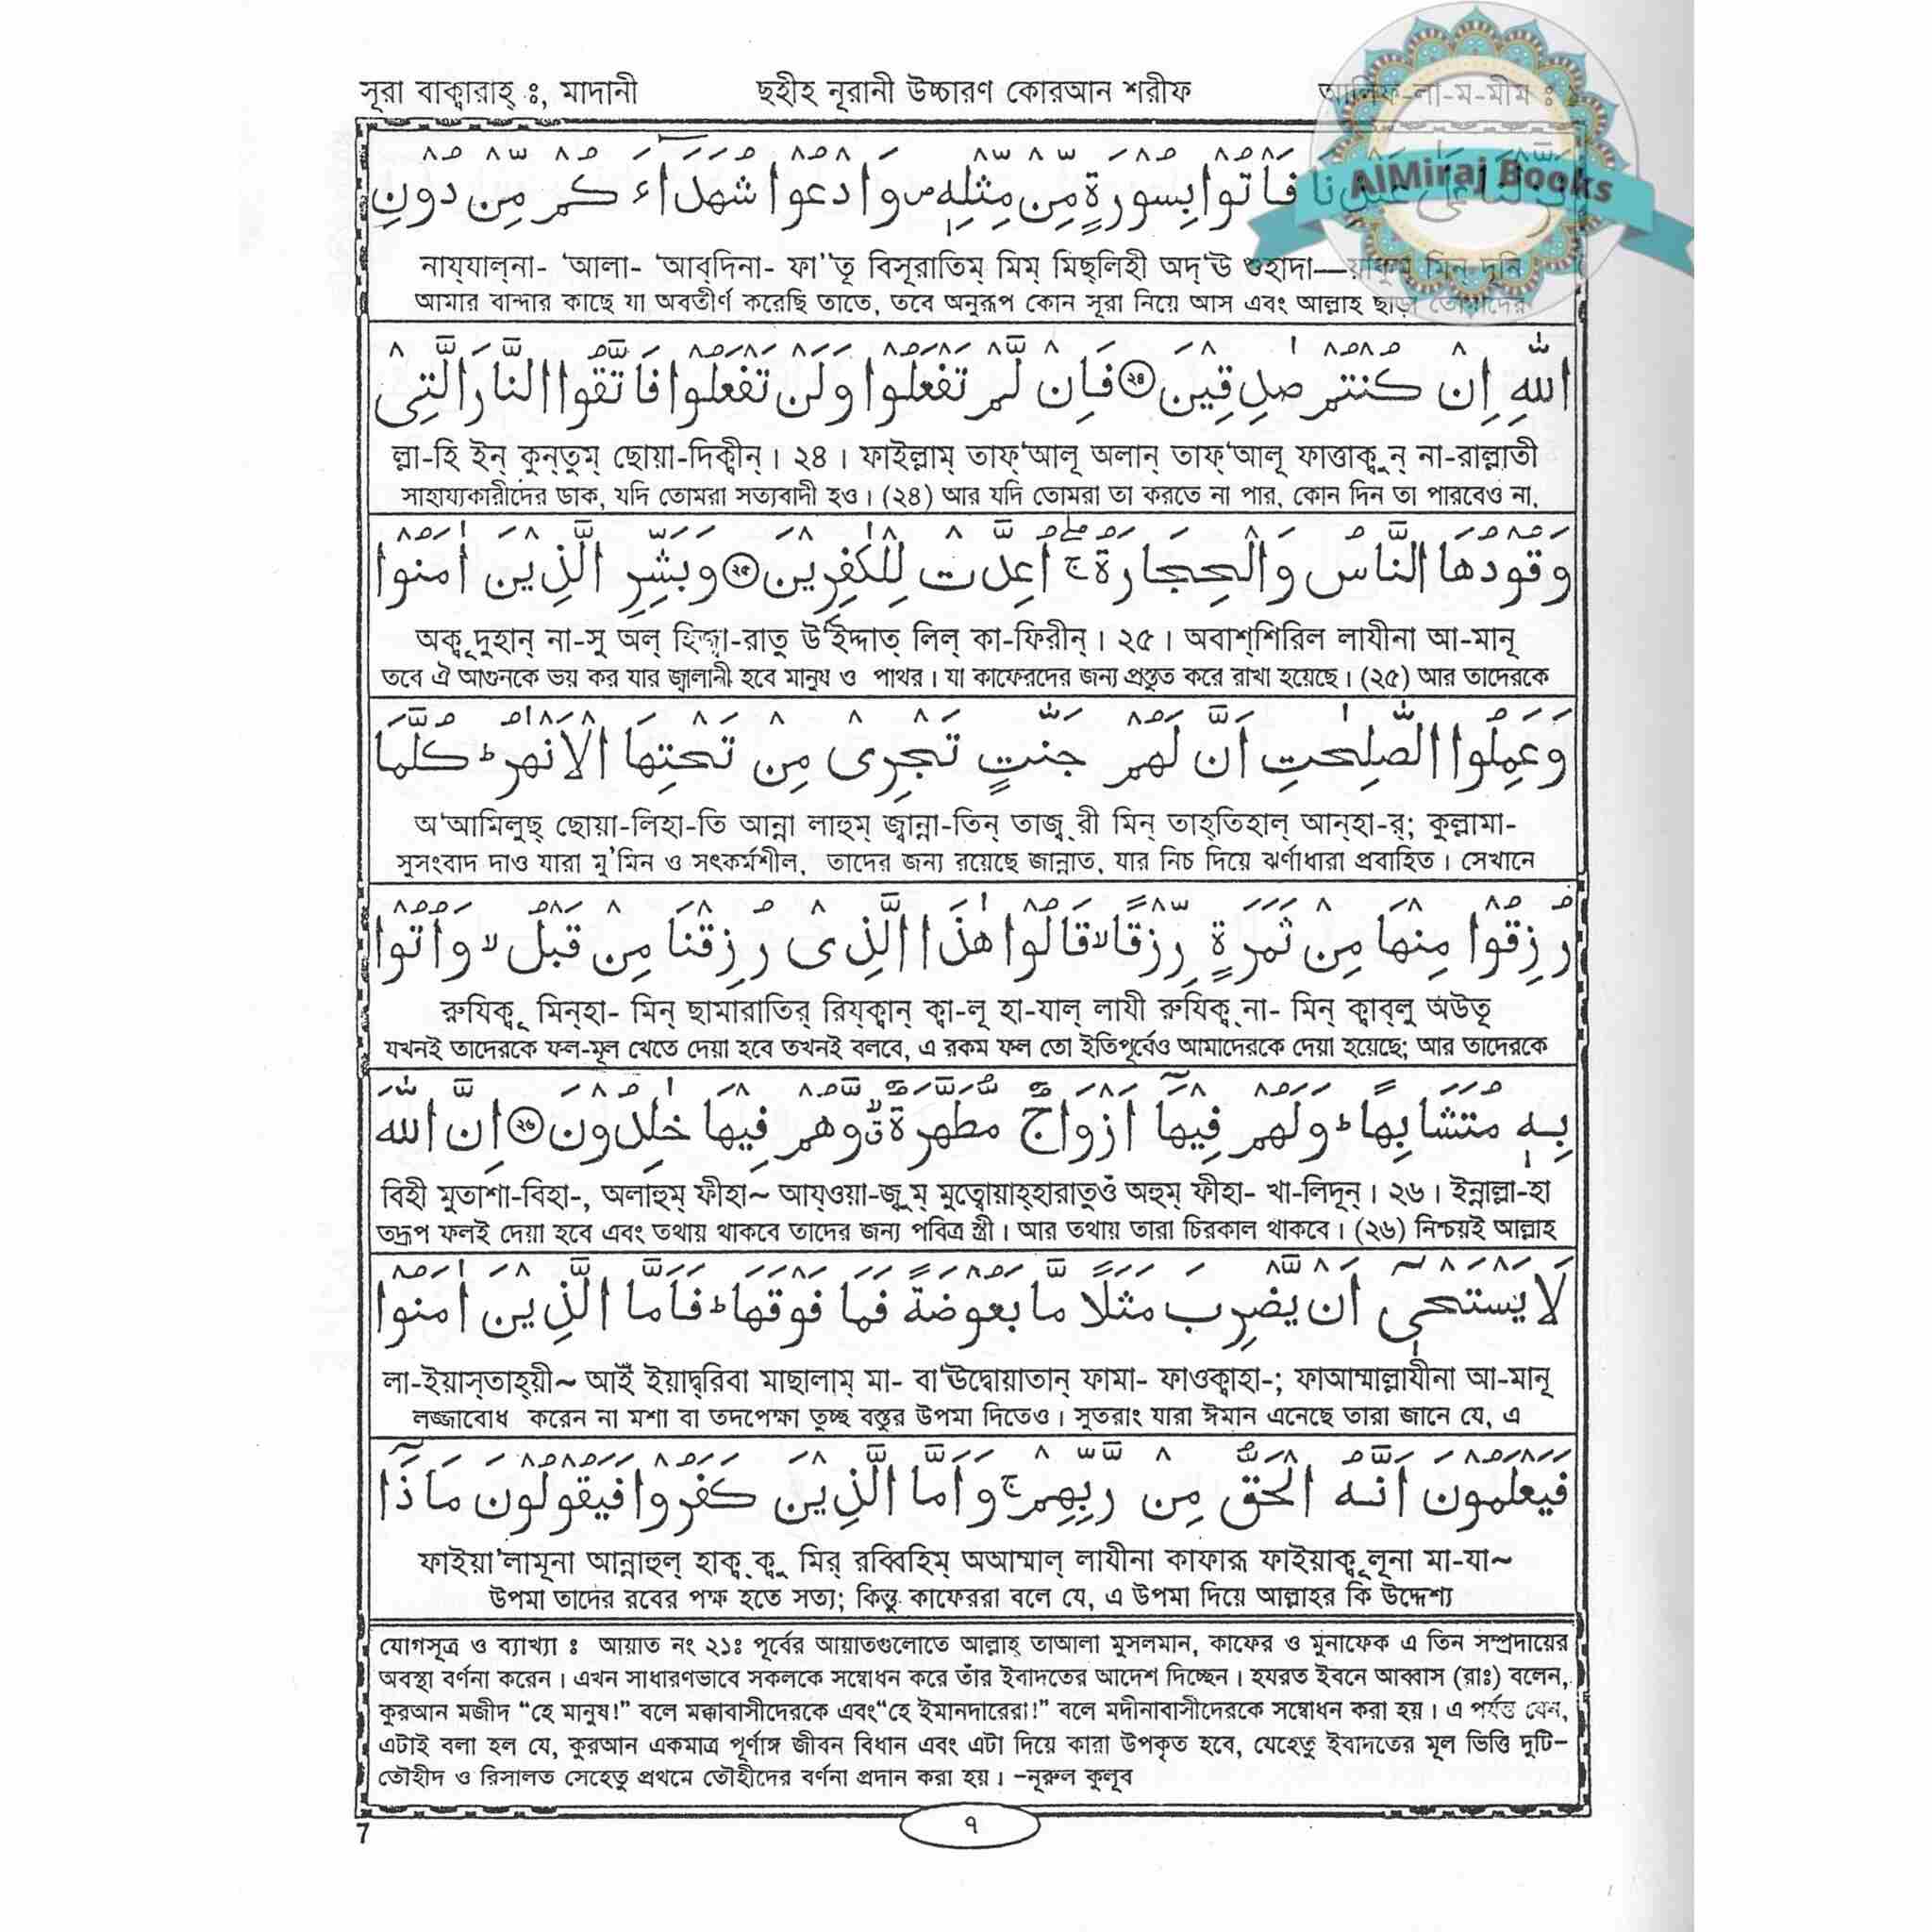 সূরা বাক্বারাহ্ ঃ, মাদানী ছহীহ নূরানী উচ্চারণ কোরআন শরীফ আলিফ-লা-ম-মীম ঃ
AlMiraj Books
فَأْتُوا بِسُورَةٍ مِّنْ مِّثْلِهٖ ص وَادْعُوا شُهَدَآءَكُمْ مِّنْ دُونِ
নায্‌যাল্‌না- ‘আলা- ‘আব্‌দিনা- ফা’’তূ বিসূরাতিম্ মিম্ মিছ্‌লিহী অদ্‘ঊ শুহাদা—য়াকুম্ মিন্ দূনি
আমার বান্দার কাছে যা অবতীর্ণ করেছি তাতে, তবে অনুরূপ কোন সূরা নিয়ে আস এবং আল্লাহ ছাড়া তোমাদের
اللّٰهِ اِنْ كُنْتُمْ صٰدِقِيْنَ ﴿٢٤﴾ فَاِنْ لَّمْ تَفْعَلُوْا وَلَنْ تَفْعَلُوْا فَاتَّقُوا النَّارَ الَّتِىْ
ল্লা-হি ইন্ কুন্‌তুম্ ছোয়া-দিক্বীন্। ২৪। ফাইল্লাম্ তাফ্‘আলূ অলান্ তাফ্‘আলূ ফাত্তাক্বুন্ না-রাল্লাতী
সাহায্যকারীদের ডাক, যদি তোমরা সত্যবাদী হও। (২৪) আর যদি তোমরা তা করতে না পার, কোন দিন তা পারবেও না,
وَقُوْدُهَا النَّاسُ وَالْحِجَارَةُ ج اُعِدَّتْ لِلْكٰفِرِيْنَ ﴿٢٥﴾ وَبَشِّرِ الَّذِيْنَ اٰمَنُوْا
অক্বূদুহান্ না-সু অল্ হিজ্বা-রাতু উ‘ইদ্দাত্ লিল্ কা-ফিরীন্। ২৫। অবাশ্‌শিরিল লাযীনা আ-মানূ
তবে ঐ আগুনকে ভয় কর যার জ্বালানী হবে মানুষ ও পাথর। যা কাফেরদের জন্য প্রস্তুত করে রাখা হয়েছে। (২৫) আর তাদেরকে
وَعَمِلُوا الصّٰلِحٰتِ اَنَّ لَهُمْ جَنّٰتٍ تَجْرِىْ مِنْ تَحْتِهَا الْاَنْهٰرُ ط كُلَّمَا
অ‘আমিলুছ্ ছোয়া-লিহা-তি আন্না লাহুম্ জ্বান্না-তিন্ তাজ্ব্‌রী মিন্ তাহ্‌তিহাল্ আন্‌হা-র্; কুল্লামা-
সুসংবাদ দাও যারা মু’মিন ও সৎকর্মশীল, তাদের জন্য রয়েছে জান্নাত, যার নিচ দিয়ে ঝর্ণাধারা প্রবাহিত। সেখানে
رُزِقُوْا مِنْهَا مِنْ ثَمَرَةٍ رِّزْقًا لا قَالُوْا هٰذَا الَّذِىْ رُزِقْنَا مِنْ قَبْلُ لا وَاُتُوْا
রুযিক্বূ মিন্‌হা- মিন্ ছামারাতির্ রিয্‌ক্বান্ ক্বা-লূ হা-যাল্ লাযী রুযিক্ব্‌না- মিন্ ক্বাব্‌লু অউতূ
যখনই তাদেরকে ফল-মূল খেতে দেয়া হবে তখনই বলবে, এ রকম ফল তো ইতিপূর্বেও আমাদেরকে দেয়া হয়েছে; আর তাদেরকে
بِهٖ مُتَشَابِهًا ط وَلَهُمْ فِيْهَآ اَزْوَاجٌ مُّطَهَّرَةٌ لا وَّهُمْ فِيْهَا خٰلِدُوْنَ ﴿٢٦﴾ اِنَّ اللّٰهَ
বিহী মুতাশা-বিহা-, অলাহুম্ ফীহা~ আয্‌ওয়া-জ্বুম্ মুত্বোয়াহ্‌হারাতুওঁ অহুম্ ফীহা- খা-লিদূন্। ২৬। ইন্নাল্লা-হা
তদ্রূপ ফলই দেয়া হবে এবং তথায় থাকবে তাদের জন্য পবিত্র স্ত্রী। আর তথায় তারা চিরকাল থাকবে। (২৬) নিশ্চয়ই আল্লাহ
لَا يَسْتَحْىٖٓ اَنْ يَّضْرِبَ مَثَلًا مَّا بَعُوْضَةً فَمَا فَوْقَهَا ط فَاَمَّا الَّذِيْنَ اٰمَنُوْا
লা-ইয়াস্‌তাহ্‌য়ী~ আইঁ ইয়াদ্ব্‌রিবা মাছালাম্ মা- বা‘ঊদ্বোয়াতান্ ফামা- ফাওক্বাহা-; ফাআম্মাল্লাযীনা আ-মানূ
লজ্জাবোধ করেন না মশা বা তদপেক্ষা তুচ্ছ বস্তুর উপমা দিতেও। সুতরাং যারা ঈমান এনেছে তারা জানে যে, এ
فَيَعْلَمُوْنَ اَنَّهُ الْحَقُّ مِنْ رَّبِّهِمْ ج وَاَمَّا الَّذِيْنَ كَفَرُوْا فَيَقُوْلُوْنَ مَاذَآ
ফাইয়া’লামূনা আন্নাহুল্ হাক্ব্‌ক্বু মির্ রব্বিহিম্ অআম্মাল্ লাযীনা কাফারূ ফাইয়াক্বূলূনা মা-যা~
উপমা তাদের রবের পক্ষ হতে সত্য; কিন্তু কাফেররা বলে যে, এ উপমা দিয়ে আল্লাহর কি উদ্দেশ্য
যোগসূত্র ও ব্যাখ্যা ঃ আয়াত নং ২১ঃ পূর্বের আয়াতগুলোতে আল্লাহ্ তাআলা মুসলমান, কাফের ও মুনাফেক এ তিন সম্প্রদায়ের
অবস্থা বর্ণনা করেন। এখন সাধারণভাবে সকলকে সম্বোধন করে তাঁর ইবাদতের আদেশ দিচ্ছেন। হযরত ইবনে আব্বাস (রাঃ) বলেন,
কুরআন মজীদ “হে মানুষ!” বলে মক্কাবাসীদেরকে এবং“হে ইমানদারেরা!” বলে মদীনাবাসীদেরকে সম্বোধন করা হয়। এ পর্যন্ত যেন,
এটাই বলা হল যে, কুরআন একমাত্র পূর্ণাঙ্গ জীবন বিধান এবং এটা দিয়ে কারা উপকৃত হবে, যেহেতু ইবাদতের মূল ভিত্তি দুটি–
তৌহীদ ও রিসালত সেহেতু প্রথমে তৌহীদের বর্ণনা প্রদান করা হয়। –নূরুল কুলূব
৭
7